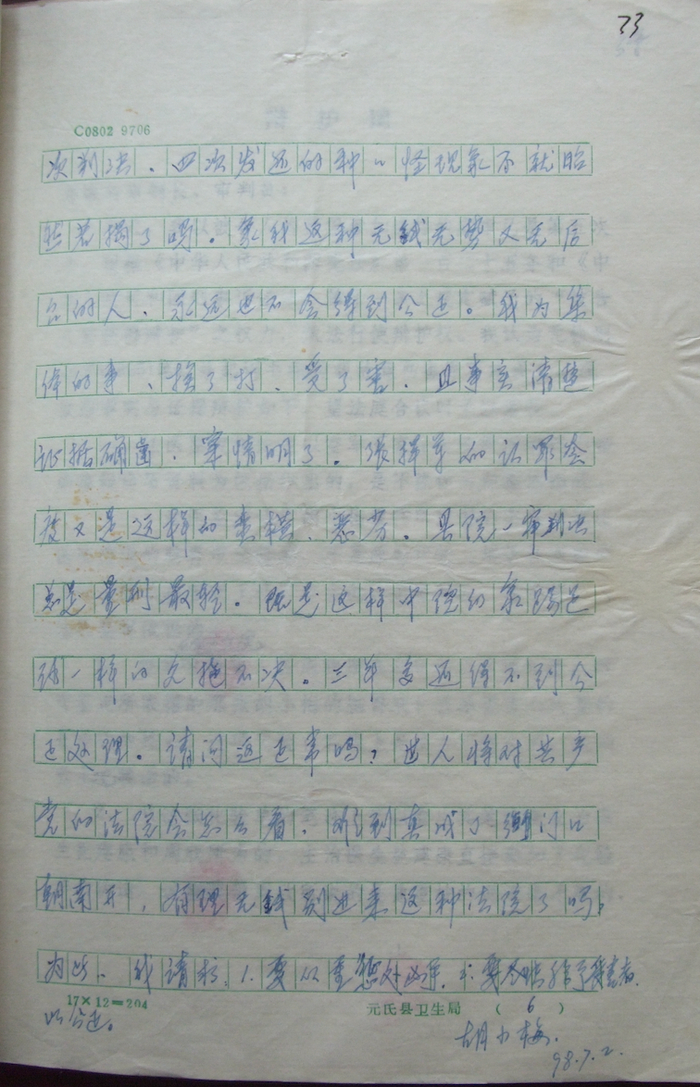 33
C0802 9706
次判决、四次发还的种々怪现象不就昭
然若揭了吗。象我这种无钱无势又无后
台的人、永远也不会得到公正。我为集
体的事、挨了打、受了害、且事实清楚
证据确凿、案情明了。张择孝的认罪态
度又是这样的、恶劣。县院一审判决
总是量刑最轻。既是这样中院的象踢足
球一样的久拖不决。三年多还得不到公
正处理。请问这正常吗？世人将对共产
党的法院会怎么看、难到真成了衙门口
朝南开、有理无钱别进来这种法院了吗？
为此、我请求：1. 要以重惩处凶手. 2. 要给予受害者
以公正。
17×12=204
元氏县卫生局 （ 6 ）
胡小梅.
98.7.2.